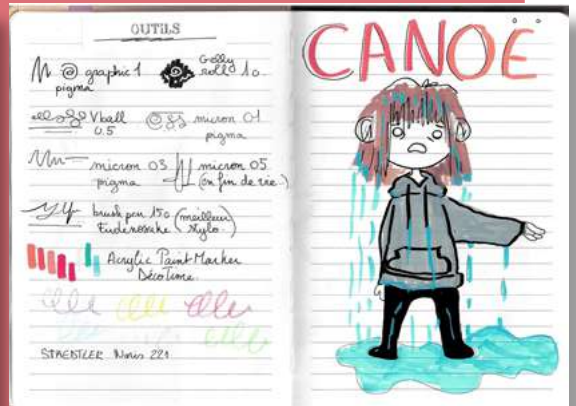 OUTILS
graphic 1
pigma
Gelly
roll 10.
Vball
0.5
micron 01
pigma
micron 03
pigma
micron 05
(en fin de vie.)
brush pen 150
Fudenosuke
(meilleur
stylo.)
Acrylic Paint Marker
DécoTime.
STAEDTLER Noris 221
CANOË